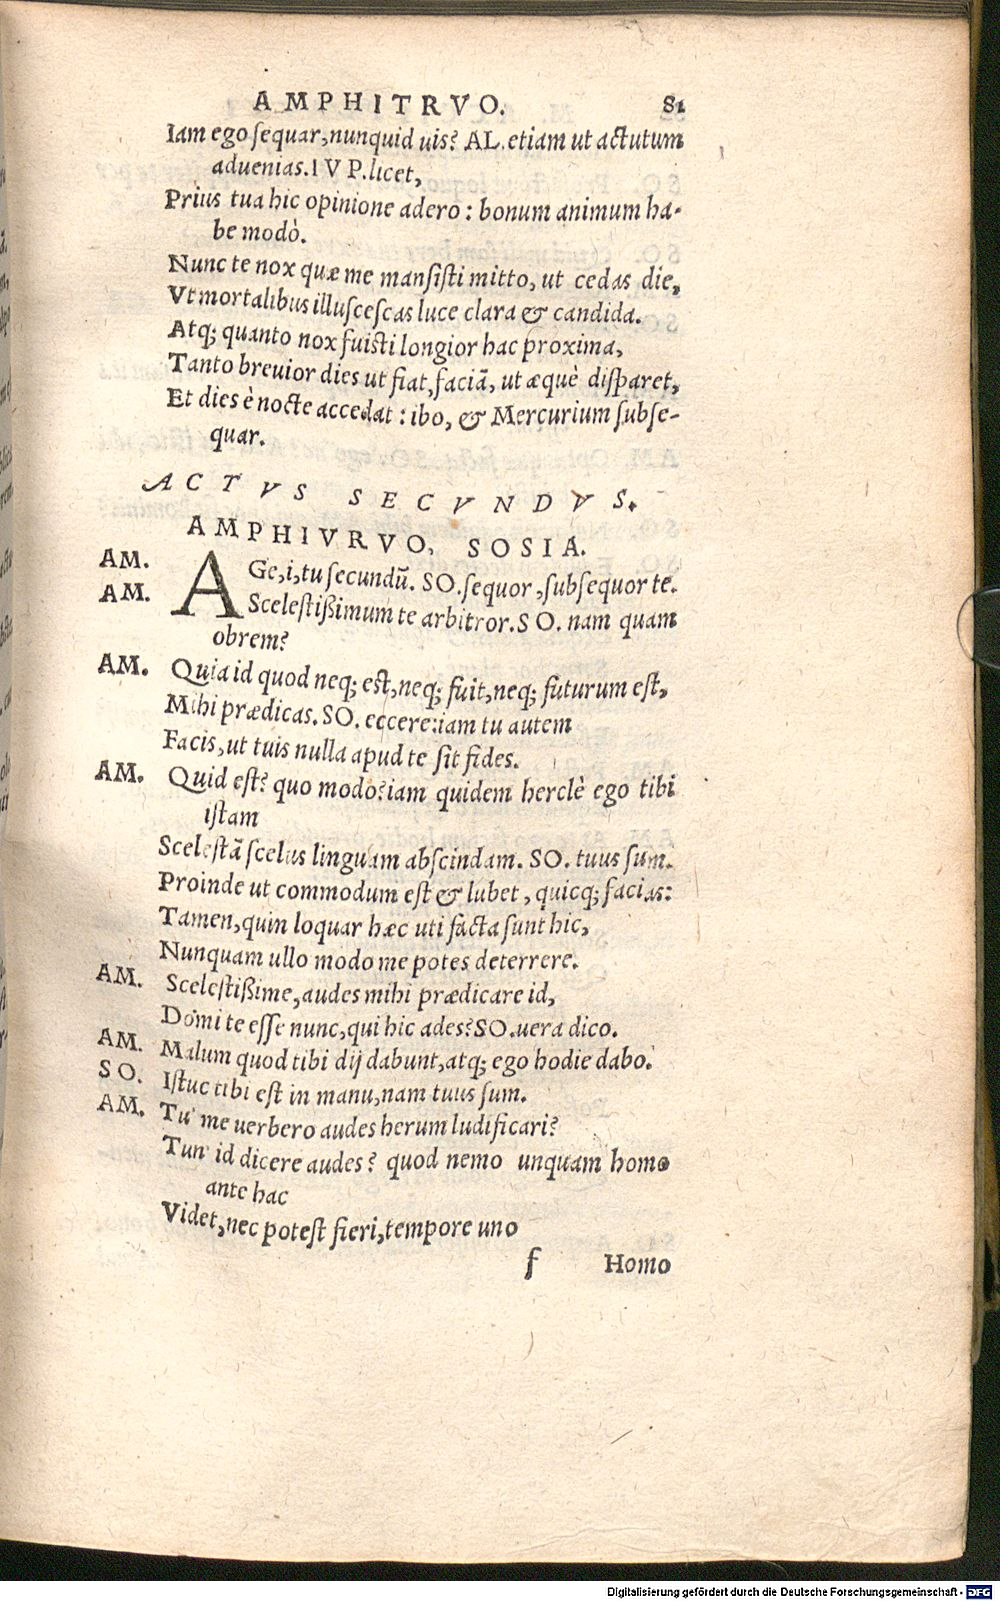 AMPHITRVO. 81
Iam ego sequar, nunquid uis? AL. etiam ut actutum
aduenias. IVP. licet,
Prius tua hic opinione adero: bonum animum ha-
be modò.
Nunc te nox quæ me mansisti mitto, ut cedas die,
Vt mortalibus illuscescas luce clara & candida.
Atq; quanto nox fuisti longior hac proxima,
Tanto breuior dies ut fiat, faciā, ut æquè disparet,
Et dies è nocte accedat: ibo, & Mercurium subse-
quar.
ACTVS SECVNDVS.
AMPHIVRVO, SOSIA.
AM. AGe, i, tu secundū. SO. sequor, subsequor te.
AM. Scelestißimum te arbitror. SO. nam quam
obrem?
AM. Quia id quod neq; est, neq; fuit, neq; futurum est,
Mihi prædicas. SO. eccere: iam tu autem
Facis, ut tuis nulla apud te sit fides.
AM. Quid est? quo modo? iam quidem herclè ego tibi
istam
Scelestā scelus linguam abscindam. SO. tuus sum.
Proinde ut commodum est & lubet, quicq; facias:
Tamen, quin loquar hæc uti facta sunt hic,
Nunquam ullo modo me potes deterrere.
AM. Scelestißime, audes mihi prædicare id,
Domi te esse nunc, qui hic ades? SO. uera dico.
AM. Malum quod tibi dij dabunt, atq; ego hodie dabo.
SO. Istuc tibi est in manu, nam tuus sum.
AM. Tu' me uerbero audes herum ludificari?
Tun' id dicere audes? quod nemo unquam homo
ante hac
Videt, nec potest fieri, tempore uno
f Homo
Digitalisierung gefördert durch die Deutsche Forschungsgemeinschaft - DFG